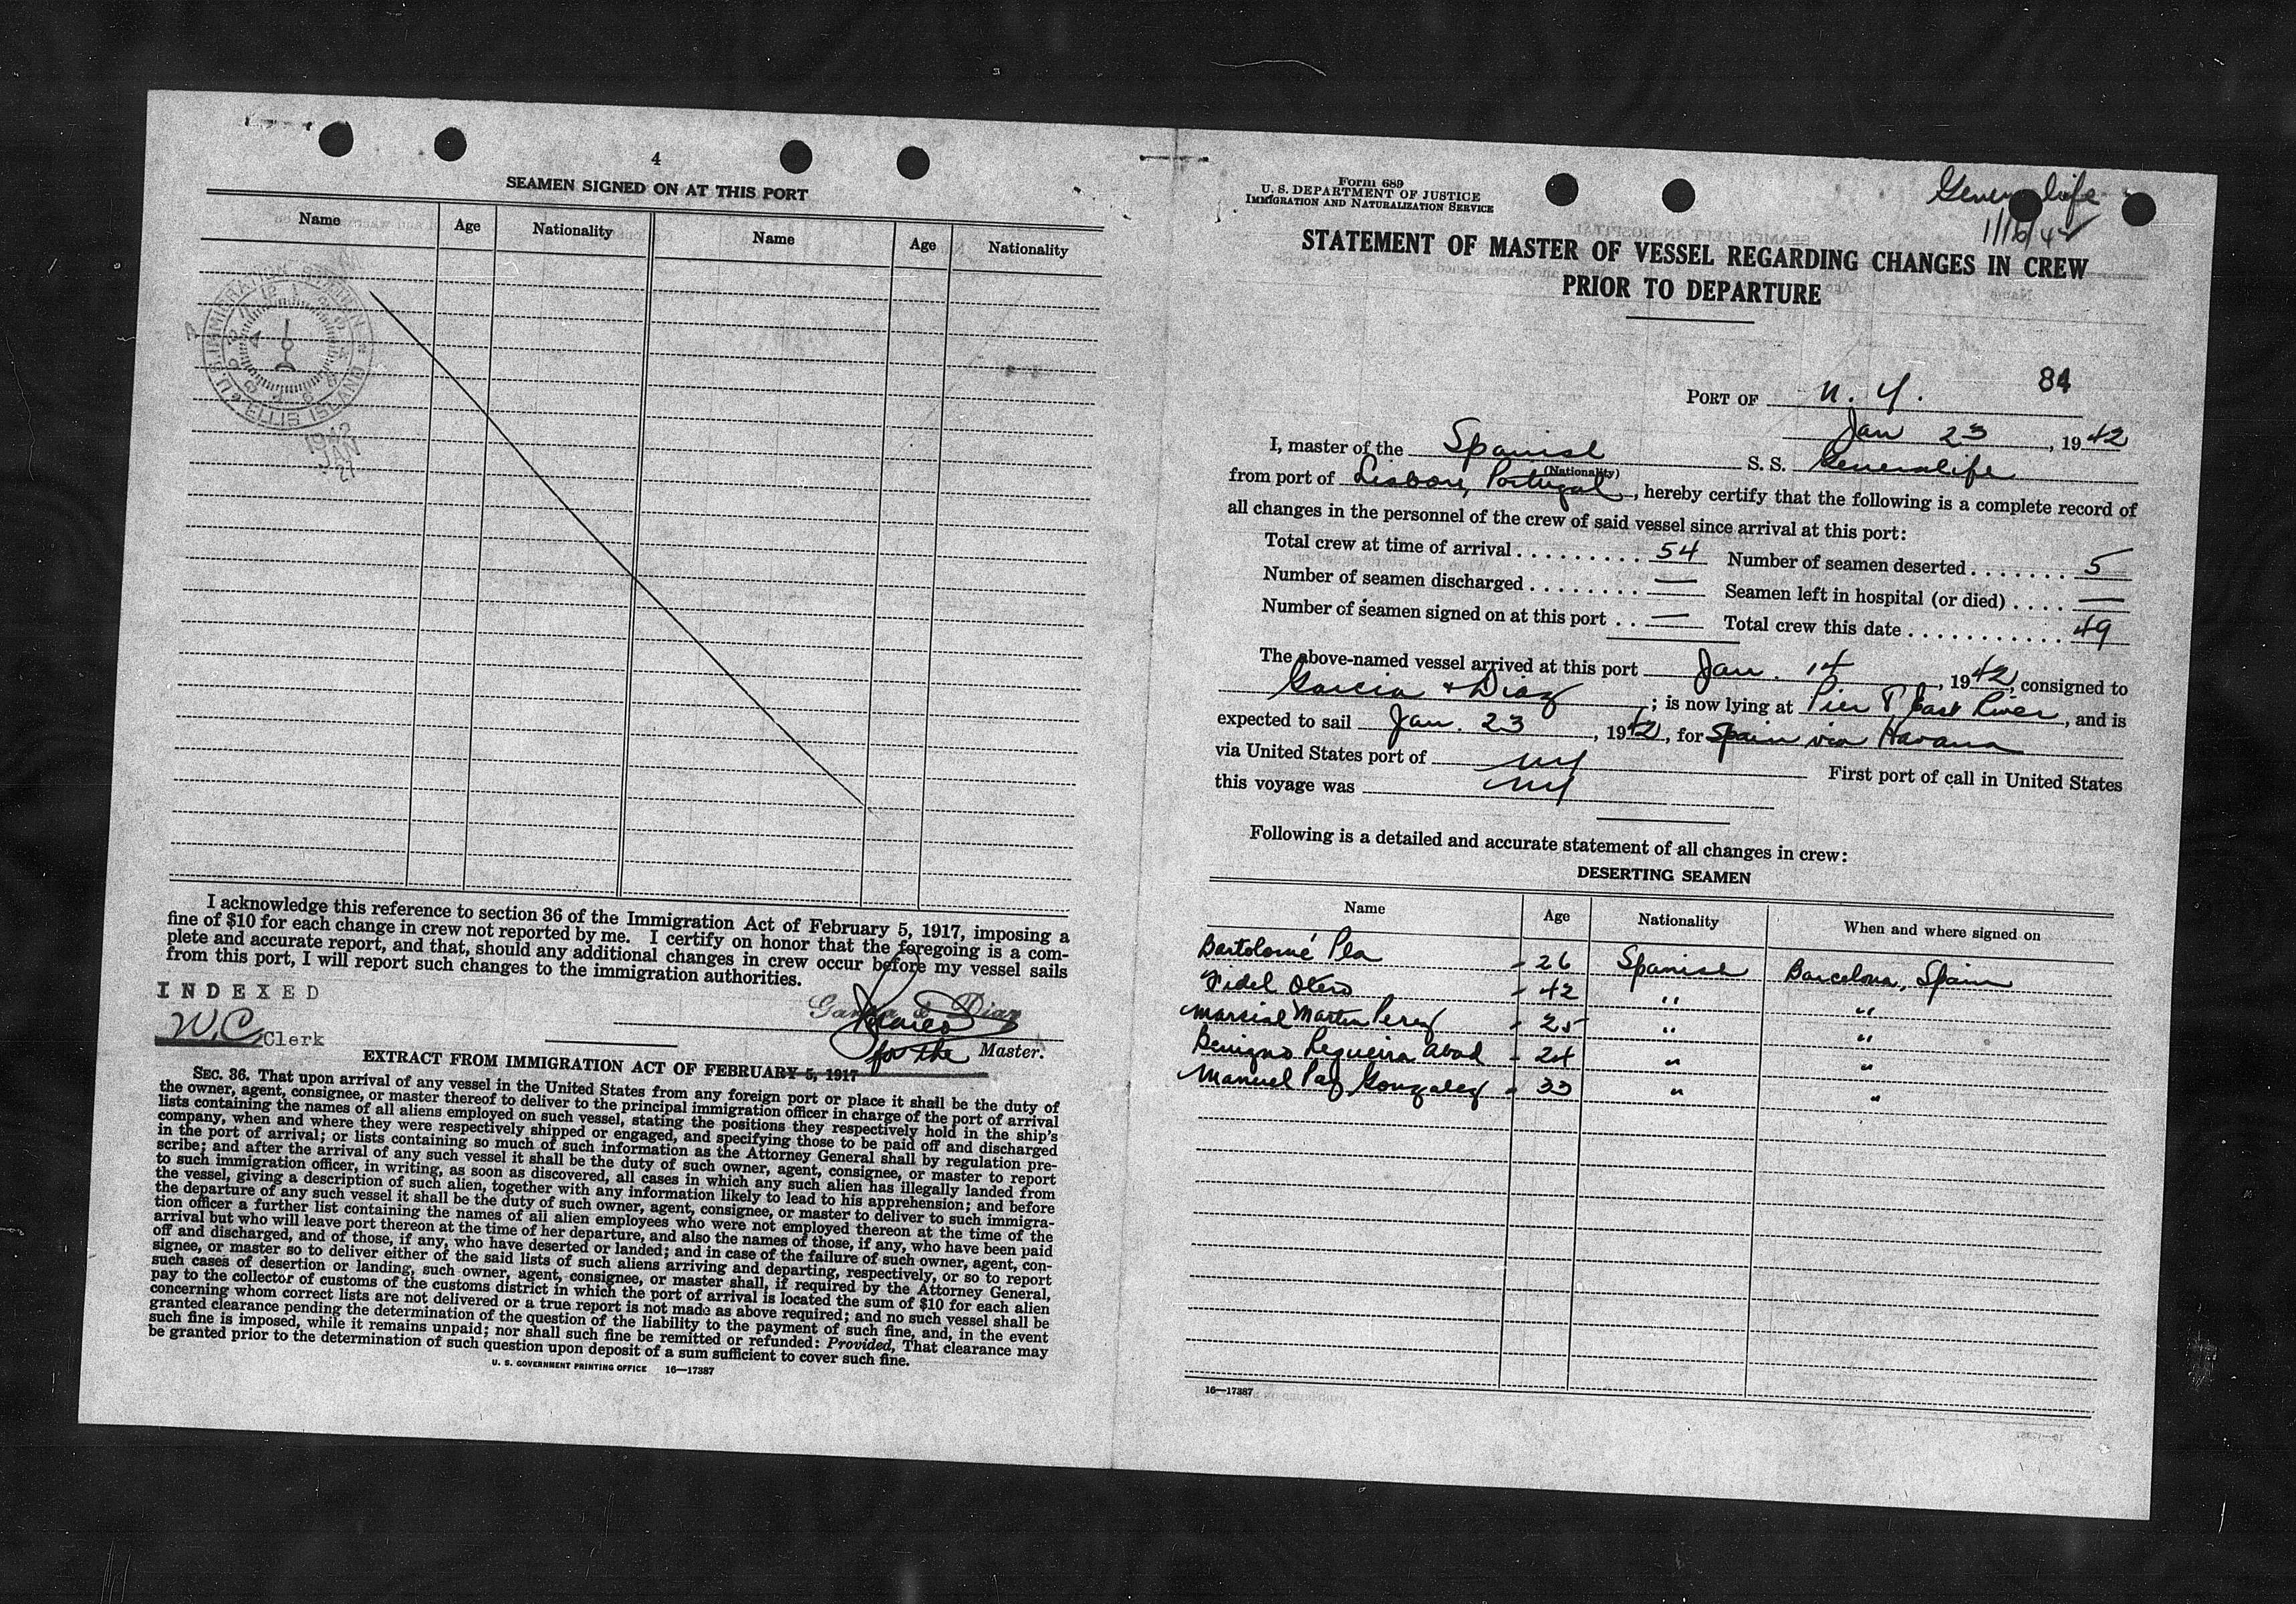 4
SEAMEN SIGNED ON AT THIS PORT
Name Age Nationality Name Age Nationality
U.S. IMMIGRATION
ELLIS ISLAND
1942
JAN
I acknowledge this reference to section 36 of the Immigration Act of February 5, 1917, imposing a
fine of $10 for each change in crew not reported by me. I certify on honor that the foregoing is a com-
plete and accurate report, and that, should any additional changes in crew occur before my vessel sails
from this port, I will report such changes to the immigration authorities.
INDEXED
Garcia & Diaz
W.C Clerk
for the Master.
EXTRACT FROM IMMIGRATION ACT OF FEBRUARY 5, 1917
SEC. 36. That upon arrival of any vessel in the United States from any foreign port or place it shall be the duty of
the owner, agent, consignee, or master thereof to deliver to the principal immigration officer in charge of the port of arrival
lists containing the names of all aliens employed on such vessel, stating the positions they respectively hold in the ship's
company, when and where they were respectively shipped or engaged, and specifying those to be paid off and discharged
in the port of arrival; or lists containing so much of such information as the Attorney General shall by regulation pre-
scribe; and after the arrival of any such vessel it shall be the duty of such owner, agent, consignee, or master to report
to such immigration officer, in writing, as soon as discovered, all cases in which any such alien has illegally landed from
the vessel, giving a description of such alien, together with any information likely to lead to his apprehension; and before
the departure of any such vessel it shall be the duty of such owner, agent, consignee, or master to deliver to such immigra-
tion officer a further list containing the names of all alien employees who were not employed thereon at the time of the
arrival but who will leave port thereon at the time of her departure, and also the names of those, if any, who have been paid
off and discharged, and of those, if any, who have deserted or landed; and in case of the failure of such owner, agent, con-
signee, or master so to deliver either of the said lists of such aliens arriving and departing, respectively, or so to report
such cases of desertion or landing, such owner, agent, consignee, or master shall, if required by the Attorney General,
pay to the collector of customs of the customs district in which the port of arrival is located the sum of $10 for each alien
concerning whom correct lists are not delivered or a true report is not made as above required; and no such vessel shall be
granted clearance pending the determination of the question of the liability to the payment of such fine, and, in the event
such fine is imposed, while it remains unpaid; nor shall such fine be remitted or refunded: Provided, That clearance may
be granted prior to the determination of such question upon deposit of a sum sufficient to cover such fine.
U. S. GOVERNMENT PRINTING OFFICE 16—17387
Form 689
U. S. DEPARTMENT OF JUSTICE
IMMIGRATION AND NATURALIZATION SERVICE
Generalife
1/16/42
STATEMENT OF MASTER OF VESSEL REGARDING CHANGES IN CREW
PRIOR TO DEPARTURE
84
PORT OF N. Y.
Jan 23, 1942
I, master of the Spanish S. S. Generalife
(Nationality)
from port of Lisbon, Portugal, hereby certify that the following is a complete record of
all changes in the personnel of the crew of said vessel since arrival at this port:
Total crew at time of arrival . . . . . . . . . 54 Number of seamen deserted . . . . . . . 5
Number of seamen discharged . . . . . . . . — Seamen left in hospital (or died) . . . . —
Number of seamen signed on at this port . . — Total crew this date . . . . . . . . . . . . 49
The above-named vessel arrived at this port Jan. 14, 1942, consigned to
Garcia & Diaz; is now lying at Pier 8 East River, and is
expected to sail Jan. 23, 1942, for Spain via Havana
via United States port of NY First port of call in United States
this voyage was NY
Following is a detailed and accurate statement of all changes in crew:
DESERTING SEAMEN
Name Age Nationality When and where signed on
Bartolomé Pla - 26 Spanish Barcelona, Spain
Fidel Otero - 42 " "
Marcial Martin Perez - 25 " "
Benigno Regueira Abad - 24 " "
Manuel Paz Gonzalez - 33 " "
16—17387